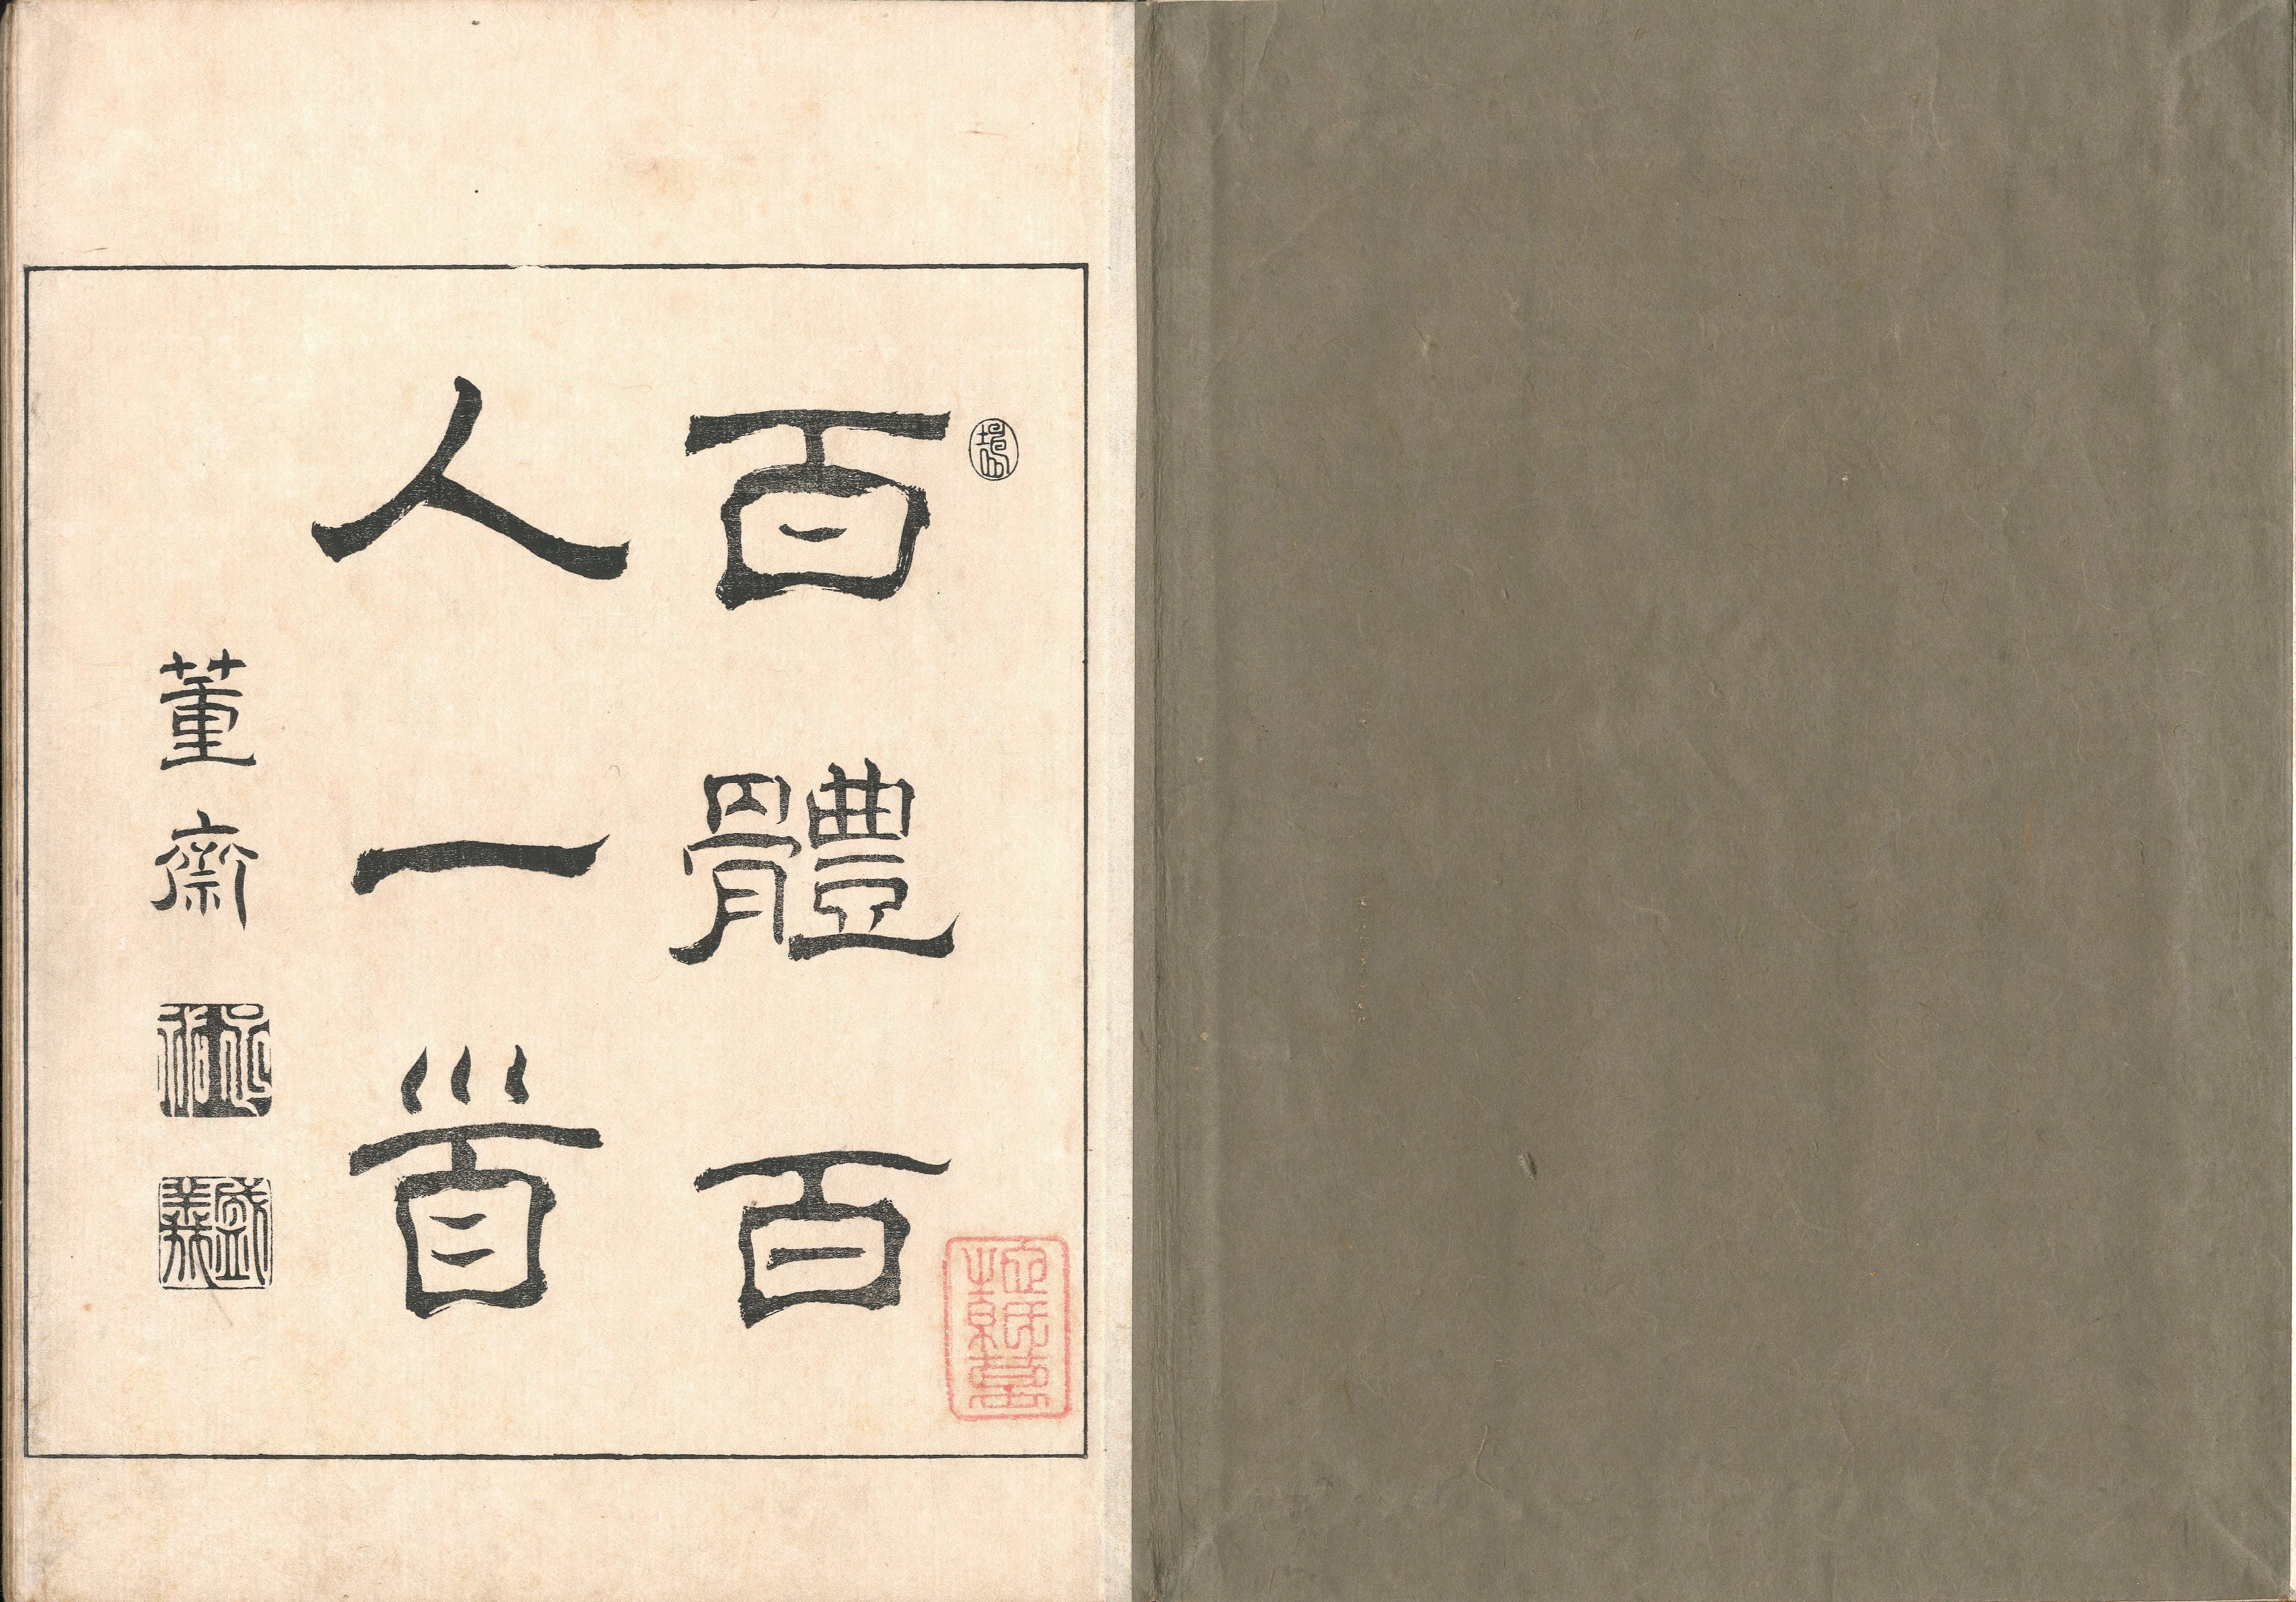 百體百
人一首
董齋
盛義